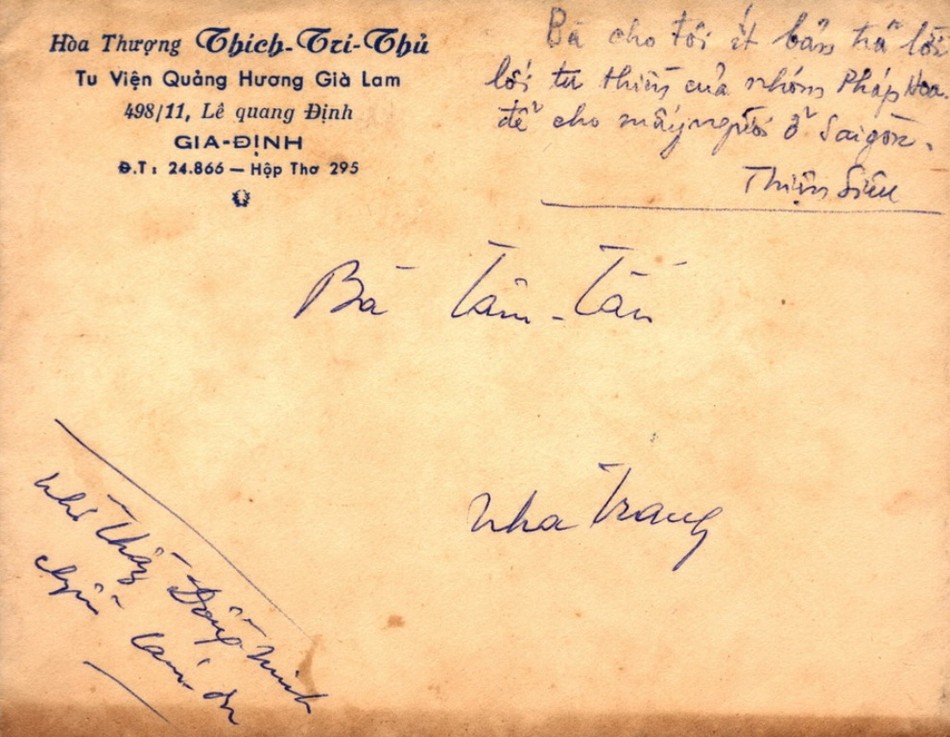 Hòa Thượng Thích-Trí-Thủ
Tu Viện Quảng Hương Già Lam
498/11, Lê quang Định
GIA-ĐỊNH
Đ.T: 24.866 — Hộp Thơ 295
Bà cho tôi ít bản trả lời
lối tu thiền của nhóm Pháp Hoa.
để cho mấy người ở Saigòn.
Thiện Siêu
Bà Tâm-Tấn
Nha Trang
nhờ Thầy Đổng Minh
chuyển cám ơn